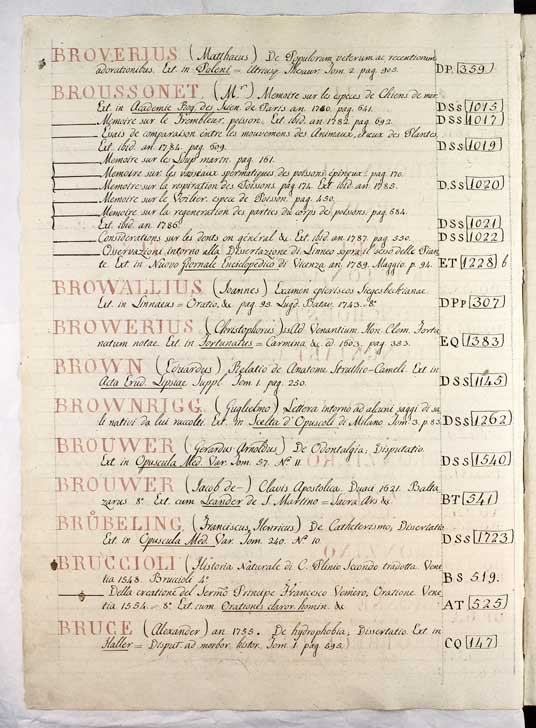 BROVERIUS (Matthaeus) De Populorum veterum ac recentiorum
adorationibus. Ext. in Poleni = Utriusq. Thesaur. Tom. 2. pag. 905. DP. 359
BROUSSONET. (Mr.) Memoire sur les especes de Chiens de mer.
Ext. in Academie Roy. des Scien. de Paris an. 1780. pag. 641. DSS 1015
Memoire sur le Trembleur, poisson. Ext. ibid. an. 1782. pag. 692. DSS 1017
Essais de comparaison entre les mouvemens des Animaux, & ceux des Plantes.
Ext. ibid. an. 1784. pag. 609. DSS 1019
Memoire sur le Loup marin. pag. 161.
Memoire sur les vaisseaux spermatiques des poissons épineux. pag. 170.
Memoire sur la respiration des Poissons. pag. 174. Ext. ibid. an. 1785. DSS 1020
Memoire sur le Voilier, espece de Poisson. pag. 450.
Memoire sur la regeneration des parties du corps des poissons. pag. 684.
Ext. ibid. an. 1786. DSS 1021
Considerations sur les dents en général &c. Ext. ibid. an. 1787. pag. 550. DSS 1022
Osservazioni intorno alla Dissertazione di Linneo sopra il sesso delle Pian-
te. Ext. in Nuovo Giornale Enciclopedico di Vicenza an. 1789. Maggio p. 94. ET 1228 b
BROWALLIUS (Joannes) Examen epicriseos Siegesbeckianae.
Ext. in Linnaeus = Oratio, & pag. 99. Lugd. Batav. 1743. 8º DPP 307
BROWERIUS (Christophorus) Ad Venantium Hon. Clem. Fortu-
natum notae. Ext. in Fortunatus = Carmina &c. 1603. pag. 383. EQ 1383
BROWN (Eduardus) Relatio de Anatome Struthio-Cameli. Ext. in
Acta Erud. Lipsiae Suppl. Tom. 1. pag. 250. DSS 1145
BROWNRIGG. (Guglielmo) Lettera intorno ad alcuni saggi di sa-
li nativi da lui raccolti. Ext. in Scelta d'Opuscoli di Milano Tom. 3. p. 83. DSS 1262
BROUWER (Gerardus Arnoldus) De Odontalgia; Disputatio.
Ext. in Opuscula Med. Var. Tom. 57. Nº 11. DSS 1540
BROUWER (Jacob de-) Clavis Apostolica. Duaci 1621. Balta-
zarus 8º Ext. cum Leander de S. Martino = Sacra Ars &c. BT 541
BRÜBELING. (Franciscus Henricus) De Catheterismo, Dissertatio.
Ext. in Opuscula Med. Var. Tom. 240. Nº 10. DSS 1723
BRUCCIOLI (Historia Naturale di C. Plinio Secondo tradotta. Vene-
tia 1548. Bruccioli 4º BS 519.
Della creatione del Sermo Principe Francesco Veniero, Oratione. Vene-
tia 1554. 8º Ext. cum Orationes claror. homin. &c. AT 525
BRUCE (Alexander) an. 1755. De hydrophobia; Dissertatio. Ext. in
Haller = Disput. ad morbor. histor. Tom. 1. pag. 593. CQ 147